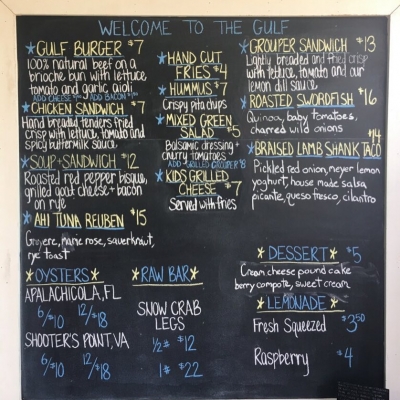 WELCOME TO THE GULF
GULF BURGER $7
100% natural beef on a
brioche bun with lettuce
tomato and garlic aioli
ADD CHEESE ADD BACON
CHICKEN SANDWICH $7
Hand breaded tenders fried
crisp with lettuce, tomato and
spicy buttermilk sauce
SOUP + SANDWICH $12
Roasted red pepper bisque,
grilled goat cheese + bacon
on rye
AHI TUNA REUBEN $15
Gruyere, marie rose, sauerkraut,
rye toast
HAND CUT
FRIES $4
HUMMUS $7
Crispy pita chips
MIXED GREEN
SALAD $5
Balsamic dressing +
cherry tomatoes
ADD GRILLED GROUPER $8
KIDS GRILLED
CHEESE $7
Served with fries
GROUPER SANDWICH $13
Lightly breaded and fried crisp
with lettuce, tomato and our
lemon dill sauce
ROASTED SWORDFISH $16
Quinoa, baby tomatoes,
charred wild onions
$14
BRAISED LAMB SHANK TACO
Pickled red onion, meyer lemon
yoghurt, house made salsa
picante, queso fresco, cilantro
OYSTERS
APALACHICOLA, FL
6/$10 12/$18
SHOOTER'S POINT, VA
6/$10 12/$18
RAW BAR
SNOW CRAB
LEGS
1/2# $12
1# $22
DESSERT $5
Cream cheese pound cake
berry compote, sweet cream
LEMONADE
Fresh Squeezed $3.50
Raspberry $4